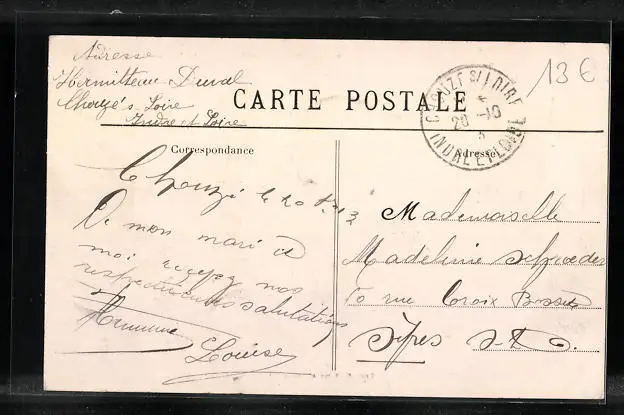 Adresse
Hermitteau-Duval
Chouzé s Loire
Indre et Loire
CARTE POSTALE
CHOUZE S/ LOIRE
20 -10
INDRE ET LOIRE
13 €
Correspondance
Adresse
Chouzé le 20 8bre 13
De mon mari et
moi recevez nos
respectueuses salutations
Louise
Mademoiselle
Madeleine
rue Croix Bosset
Sèvres S. & O.